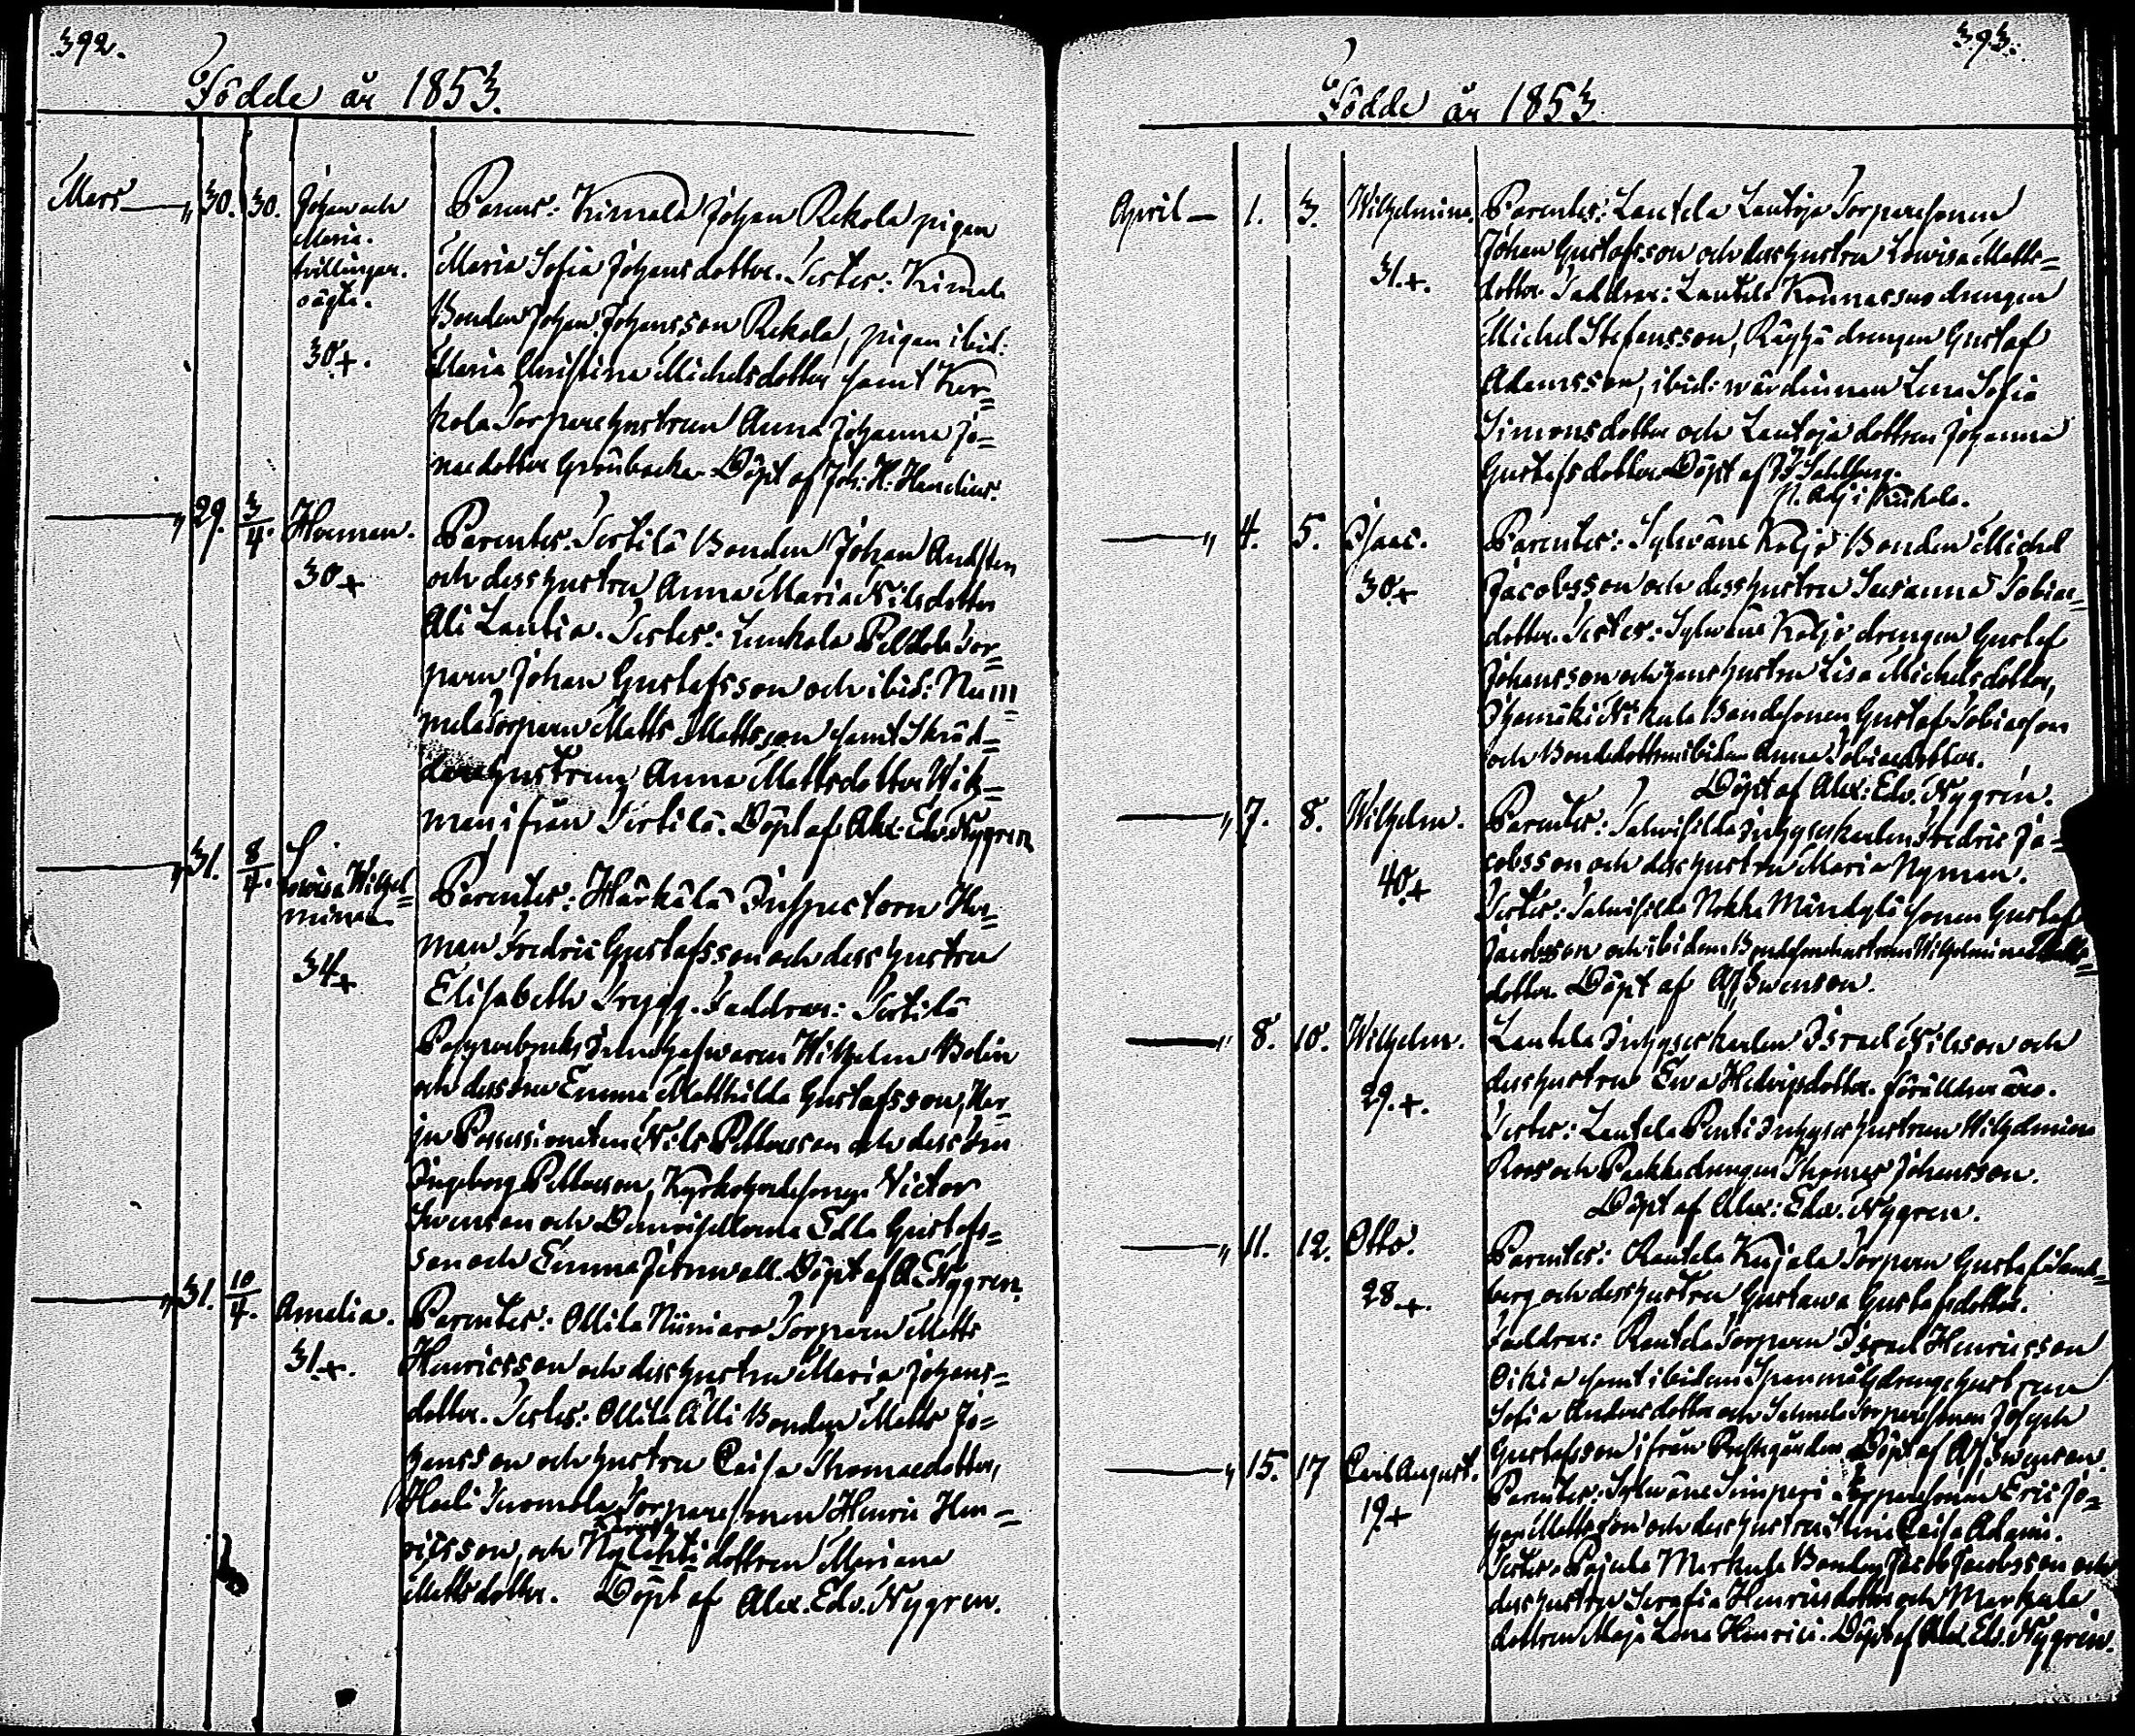 392.
Födde år 1853.
Mars — „ 30. 30. Johan och
Maria.
tvillingar.
oägta.
30+.
Parens: Kimala Johan Rekola pigan
Maria Sofia Johansdotter. Testes: Kimala
Bonden Johan Johansson Rekola, pigan ibid:
Maria Christina Michelsdotter samt Ker=
kola Torparehustrun Anna Johanna Jo=
naedotter Grönbacka. Döpt af Joh: H: Handius.
— „ 29. 3/4. Herman.
30+
Parentes: Tertilä Bonden Johan Andsten
och dess hustru Anna Maria Nilsdotter
Ali Lautia. Testes: Lunkala Peldola Tor=
paren Johan Gustafsson och ibid: Num=
mela Torparen Matts Mattsson samt Skräd=
darehustrun Anna Mattsdotter Wik=
man ifrån Tertilä. Döpt af Alex: Edv. Nygren
— „ 31. 8/4. Lovisa Wilhel=
mina
34+
Parentes: Härkälä Inspectorn Her=
man Fredric Gustafsson och dess hustru
Elisabeth Trygg. Faddrar: Tertilä
Wilhelm Bolin
och dess fru Emma Mathilda Gustafsson, Har=
ju Possessionaten Nils Pettersson och dess fru
Ingeborg Pettersson, Victor
Swenson och Demoisellerna Edla Gustafs=
son och Emma Jernwall. Döpt af A. E. Nygren.
— „ 31. 10/4. Amelia.
31+.
Parentes: Ollila Niiniaro Torparen Matts
Henricsson och dess hustru Maria Johans=
dotter. Testes: Ollila Alli Bonden Matts Jo=
hansson och hustru Caisa Thomaedotter,
Haali Tuomola Torparesonen Henric Hen=
ricsson, och dottren Mariana
Mattsdotter. Döpt af Alex. Edv. Nygren.
393.
Födde år 1853
April — 1. 3. Wilhelmina
31.+.
Parentes: Lautela Lautoja Torparesonen
Johan Gustafsson och dess hustru Lowisa Matts=
dotter. Faddrar: Lautela drengen
Michel Stefansson, Räyhä drengen Gustaf
Adamsson, ibid: wärdinnan Lena Sofia
Simonsdotter och Lautoja dottren Johanna
Gustafsdotter. Döpt af Sahlberg.
p. Adj: i
— „ 4. 5. Isaac.
30+
Parentes: Sylwäne Koljo Bonden Michel
Jacobsson och dess hustru Susanna Tobiae=
dotter. Testes: Sylwäne Koljo drengen Gustaf
Johansson och hans hustru Lisa Michelsdotter,
Ojamäki Nikula Bondesonen Gustaf Tobiasson
och Bondedottren ibidem Anna Tobiaedotter.
Döpt af Alex: Edv. Nygrén.
— „ 7. 8. Wilhelm.
40+
Parentes: Inhyseskarlen Fredric Ja=
cobsson och dess hustru Maria Nyman.
Testes: Gustaf
Jacobsson och ibidem Bondesonhustrun Wilhelmina Matts=
dotter. Döpt af Af Swenson.
— „ 8. 10. Wilhelm.
29.+.
Lautela Inhyseskarlen Israel Nilsson och
dess hustru Ewa Hedvigsdotter. föräldrar äro.
Testes: Lautela Penti Inhyseshustrun Wilhelmina
Roos och drengen Thomas Johansson.
Döpt af Alex: Edv. Nygren.
— „ 11. 12. Otto.
28+.
Parentes: Rautela Kujala Torparen Gustaf Sand=
berg och dess hustru Gustawa Gustafsdotter.
Faddrar: Rautela Torparen Israel Henricsson
Oikia samt ibidem Spannmålsdrengehustrun
Sofia Andersdotter och Torparesonen Joseph
Gustafsson ifrån Prestgården. Döpt af Af Swenson.
— „ 15. 17 Carl August.
19.+
Parentes: Sylwäne Simperi Torparesonen Eric Jo=
han Mattsson och dess hustru Stina Caisa Adami.
Testes: Pajula Markula Bonden Jacob Jacobsson och
dess hustru Serafia Henricsdotter och Markula
dottren Maja Lena Henrici. Döpt af Alex. Edv. Nygrén.